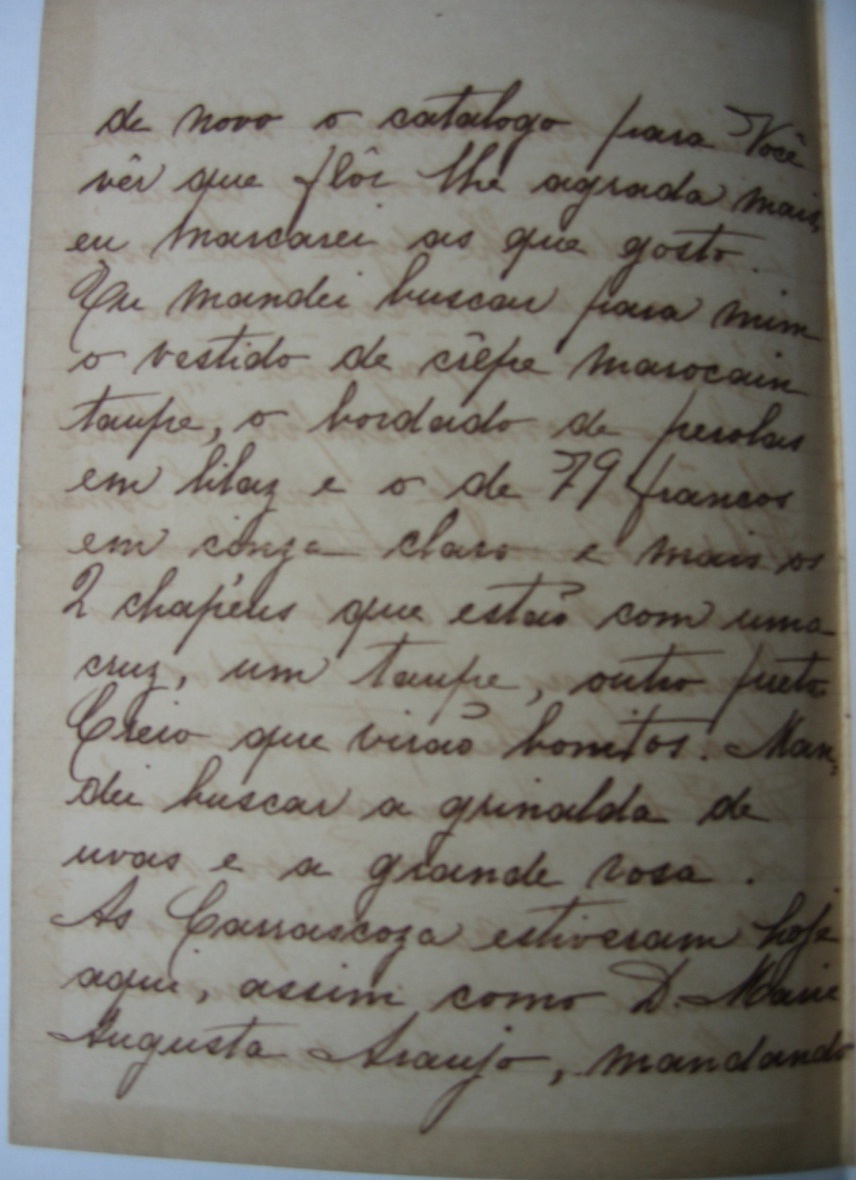 de novo o catalogo para Você
vêr que flôr lhe agrada mais,
eu marcarei as que gosto.
Eu mandei buscar para mim
o vestido de crêpe marocain
taupe, o bordado de perolas
em lilaz e o de 79 francos
em cinza claro e mais os
2 chapéus que estão com uma
cruz, um taupe, outro preto
Creio que virão bonitos. Man,
dei buscar a grinalda de
uvas e a grande rosa.
As Carrascoza estiveram hoje
aqui, assim como D. Marie
Augusta Araujo, mandando